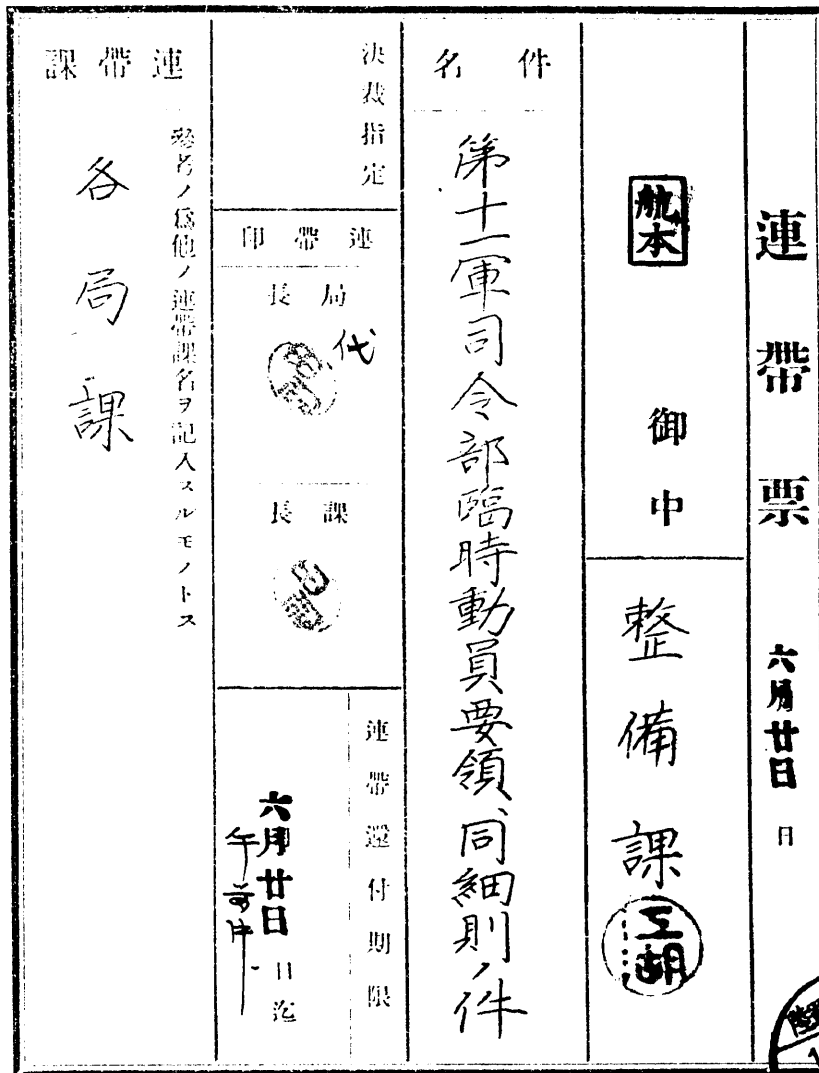 連帶票
六月廿日
日
航本
御中
整備課
件名
第十一軍司令部臨時動員要領、同細則ノ件
決裁指定
連帶印
局長
代
課長
連帶還付期限
六月廿日
日迄
午前中
連帶課
參考ノ爲他ノ連帶課名ヲ記入スルモノトス
各局課